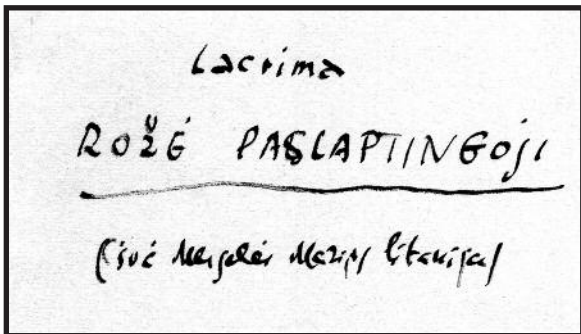 Lacrima
ROŽĖ PASLAPTINGOJI
(švč Mergelės Marijos litanija)